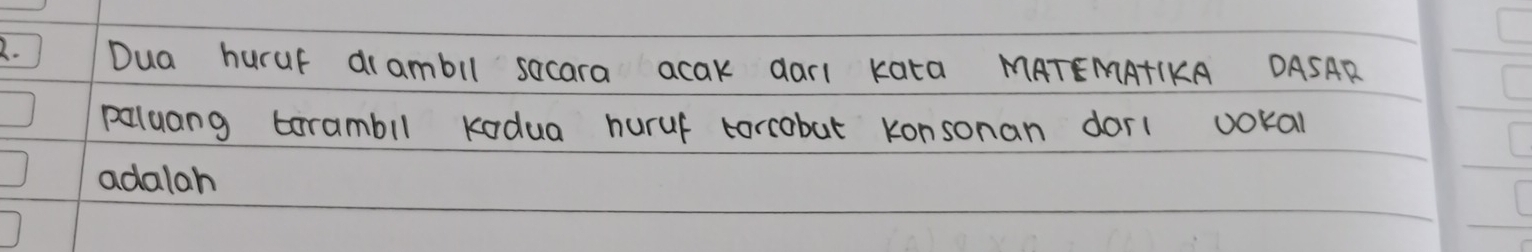 2. Dua huruf diambil secara acak dari kata MATEMATIKA DASAR
peluang terambil kedua huruf tercebut konsonan dari vokal
adalah